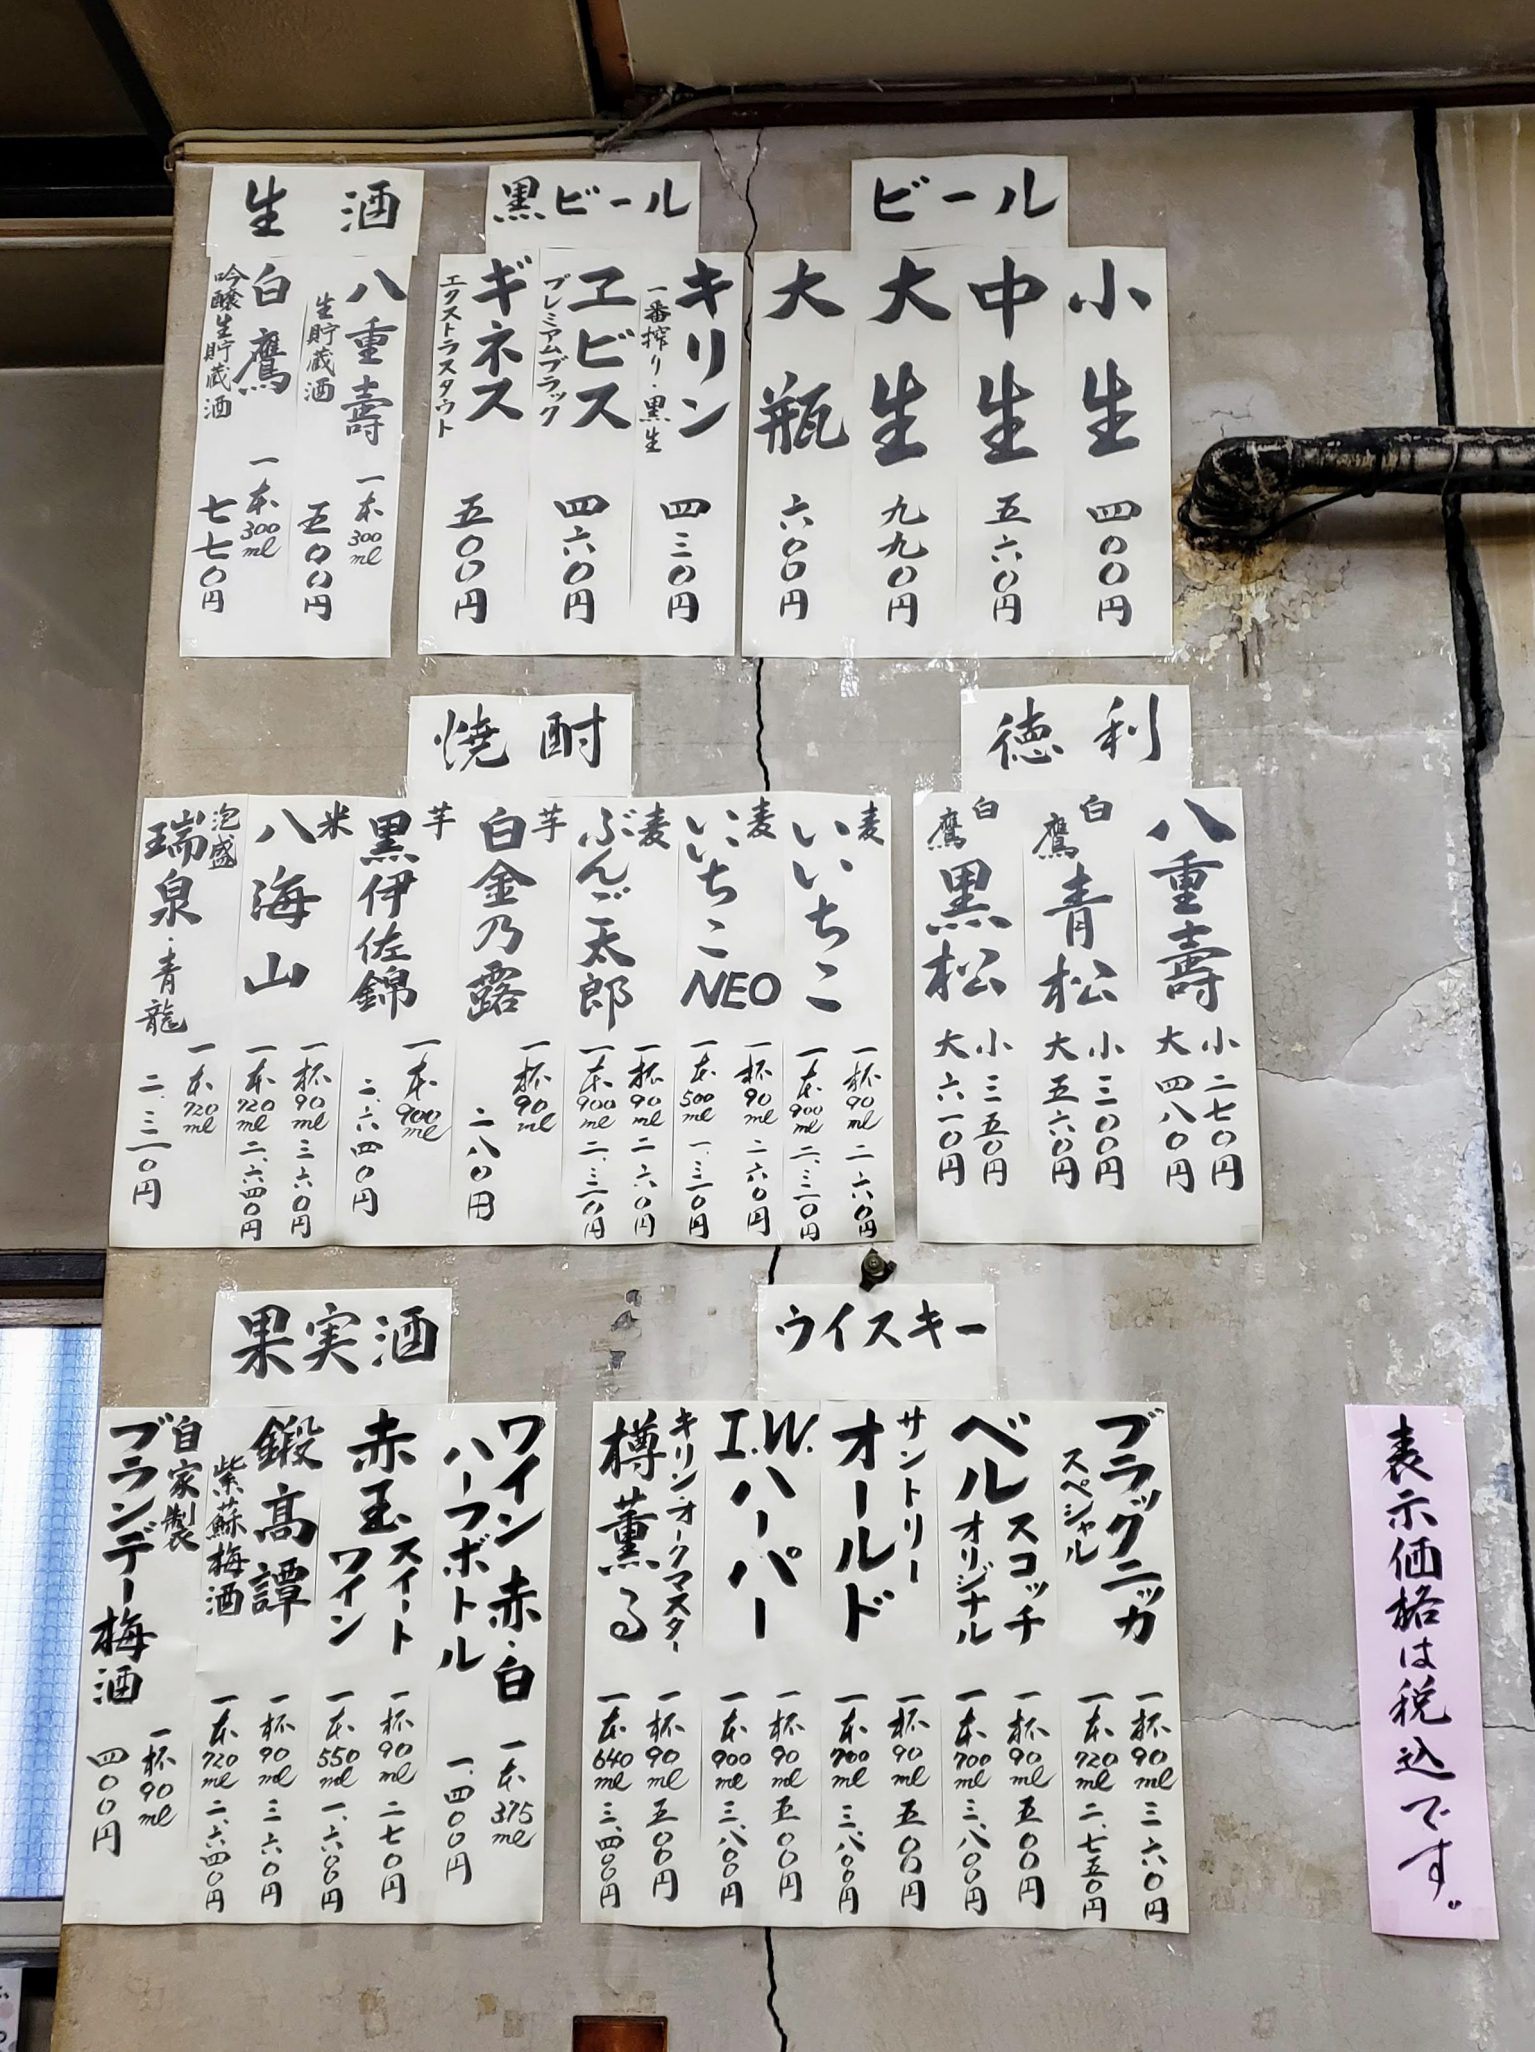 ビール
小生 四〇〇円
中生 五六〇円
大生 九九〇円
大瓶 六〇〇円
黒ビール
キリン
一番搾り・黒生
四三〇円
ヱビス
プレミアムブラック
四六〇円
ギネス
エクストラスタウト
五〇〇円
生酒
八重壽
生貯蔵酒
一本300ml
五〇〇円
白鷹
吟醸生貯蔵酒
一本300ml
七七〇円
徳利
八重壽
小 二七〇円
大 四八〇円
白鷹 青松
小 三〇〇円
大 五六〇円
白鷹 黒松
小 三五〇円
大 六一〇円
焼酎
麦
いいちこ
一杯90ml 二六〇円
一本900ml 二、三一〇円
麦
いいちこNEO
一杯90ml 二六〇円
一本500ml 一、三一〇円
麦
ぶんご太郎
一杯90ml 二六〇円
一本900ml 二、三一〇円
芋
白金乃露
一杯90ml
二八〇円
芋
黒伊佐錦
一本900ml
二、六四〇円
米
八海山
一杯90ml 三六〇円
一本720ml 二、六四〇円
泡盛
瑞泉・青龍
一本720ml
二、三一〇円
ウイスキー
ブラックニッカ
スペシャル
一杯90ml 三六〇円
一本720ml 二、七五〇円
ベル スコッチ
オリジナル
一杯90ml 五〇〇円
一本700ml 三、八〇〇円
サントリー
オールド
一杯90ml 五〇〇円
一本700ml 三、八〇〇円
I.W.ハーパー
一杯90ml 五〇〇円
一本700ml 三、八〇〇円
キリン・オークマスター
樽薫る
一杯90ml 五〇〇円
一本640ml 三、四〇〇円
果実酒
ワイン 赤・白
ハーフボトル
一本375ml
一、四〇〇円
赤玉スイートワイン
一杯90ml 二七〇円
一本550ml 一、六〇〇円
鍛高譚
紫蘇梅酒
一杯90ml 三六〇円
一本720ml 二、六四〇円
自家製
ブランデー梅酒
一杯90ml
四〇〇円
表示価格は税込です。